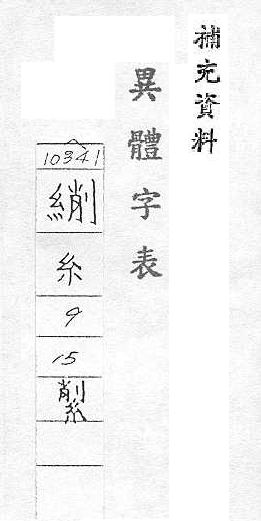 補充資料
異體字表
10341
糸
9
15